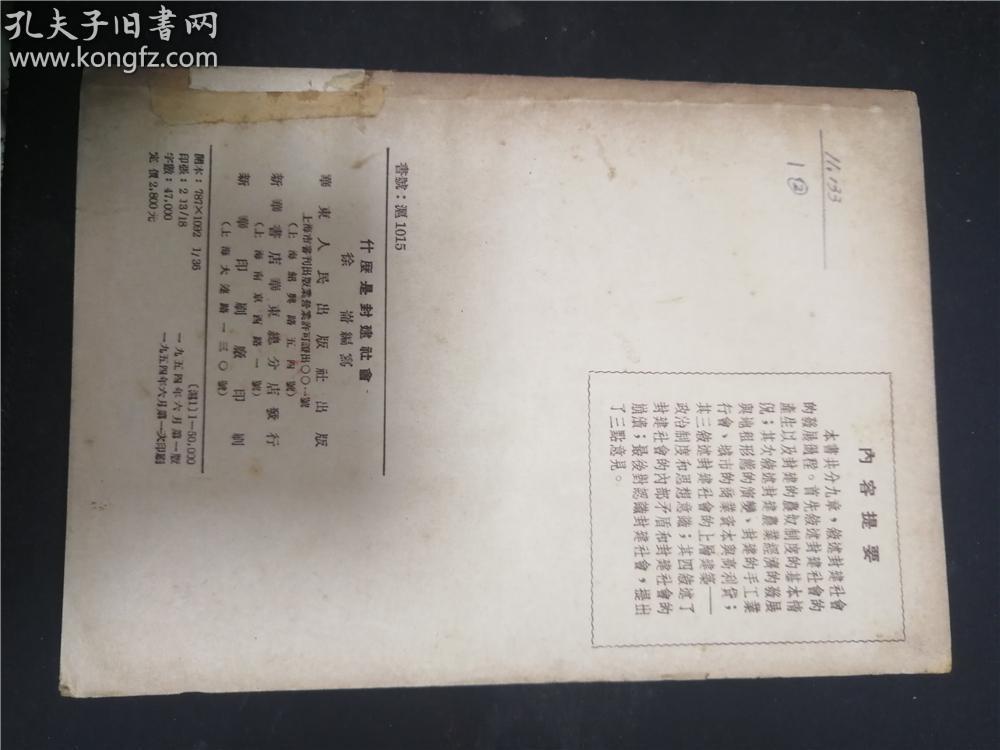 孔夫子旧书网
www.kongfz.com
11,133
1②
內容提要
本書共分九章，敘述封建社會
的發展過程。首先敘述封建社會的
產生以及封建的農奴制度的基本情
況；其次敘述封建農業經濟的發展
與地租形態的演變、封建的手工業
行會、城市的商業資本與高利貸；
其三敘述封建社會的上層建築——
政治制度和思想意識；其四敘述了
封建社會的內部矛盾和封建社會的
崩潰；最後對認識封建社會，提出
了三點意見。
書號：滬1015
什麼是封建社會
徐崙編寫
華東人民出版社出版
上海市書刊出版業營業許可證出〇〇一號
(上海紹興路五四號)
新華書店華東總分店發行
(上海南京西路一號)
新華印刷廠印刷
(上海大連路一三〇號)
開本：787×1092 1/36
印張：2 13/18
字數：47,000
定價2,800元
(滬1)1—50,000
一九五四年六月第一版
一九五四年六月第一次印刷